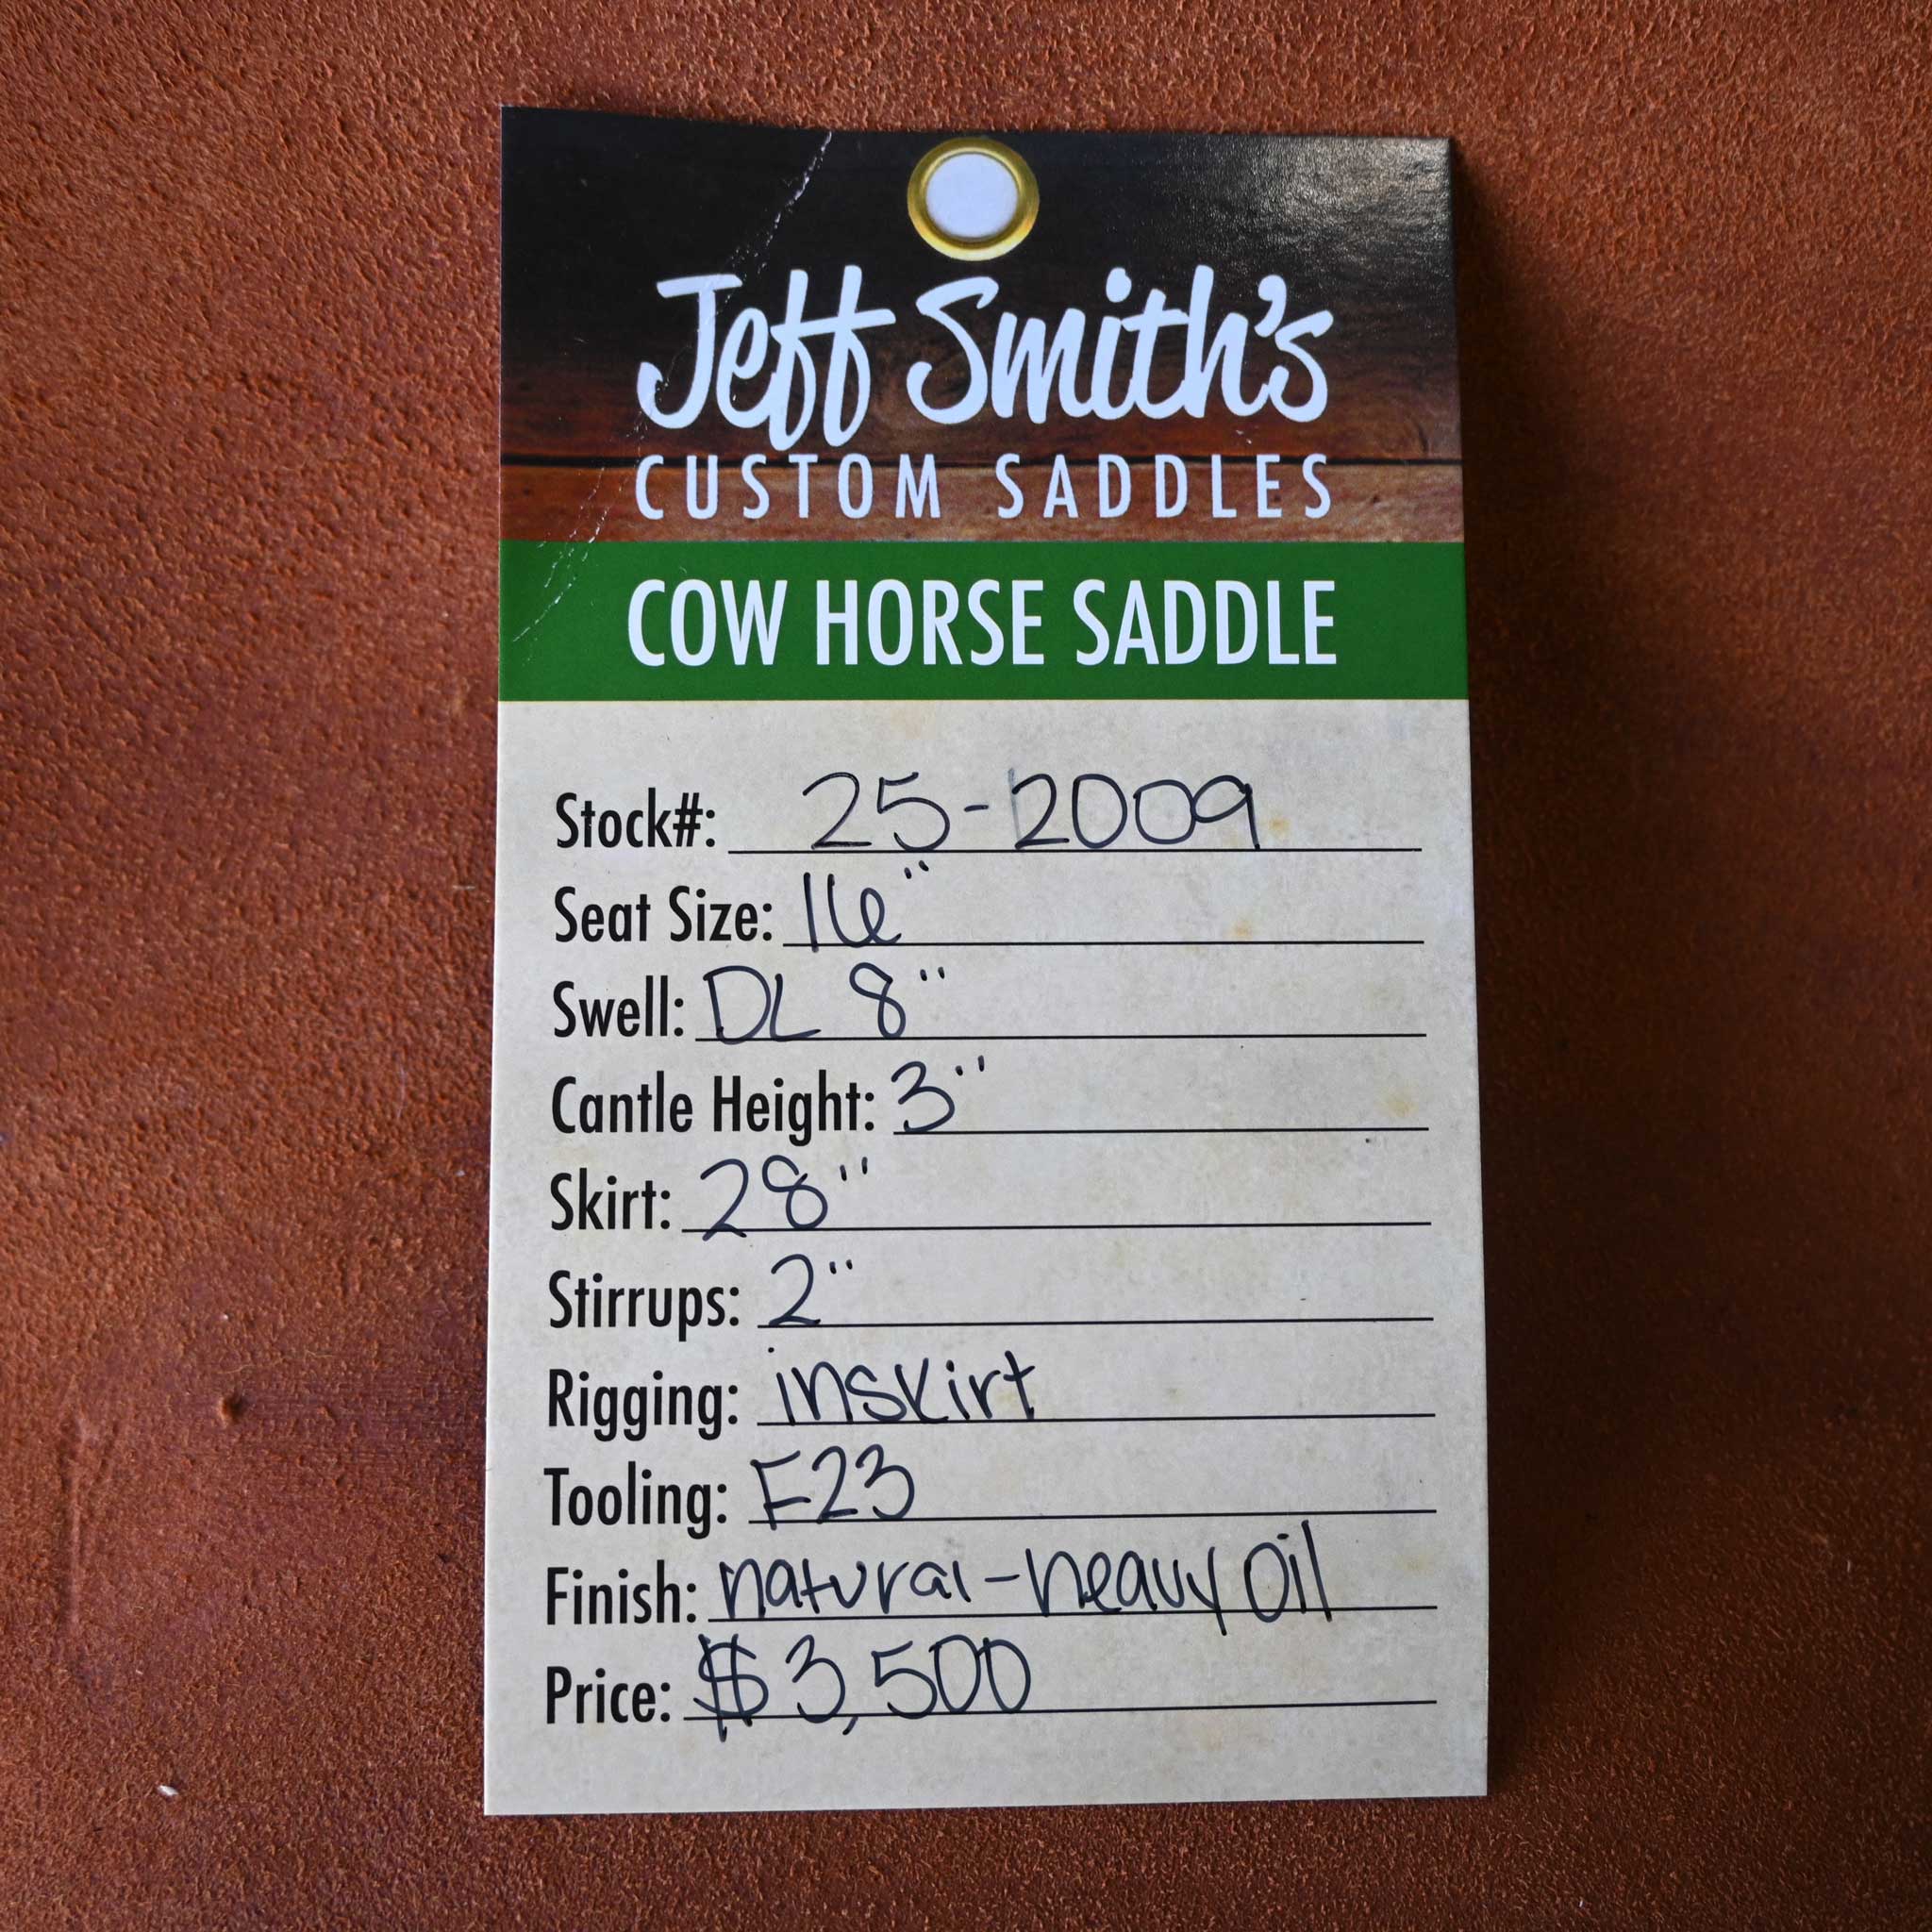 Jeff Smith's
CUSTOM SADDLES
COW HORSE SADDLE
Stock#: 25-2009
Seat Size: 16"
Swell: DL 8"
Cantle Height: 3"
Skirt: 28"
Stirrups: 2"
Rigging: inskirt
Tooling: F23
Finish: natural-heavy oil
Price: $3,500